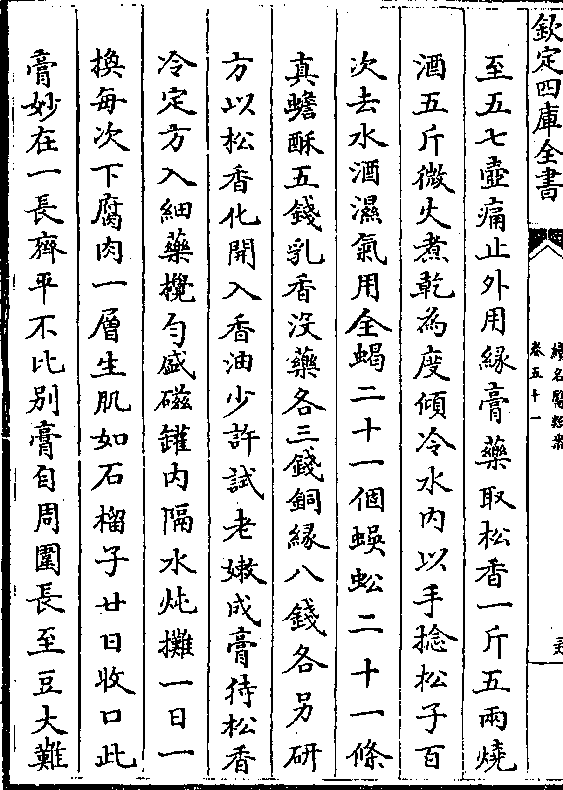 欽定四庫全書
續名醫類案
卷五十一
至五七壺痛止外用緣膏藥取松香一斤五兩燒
酒五斤微火煮乾為度傾冷水內以手捻松子百
次去水酒濕氣用全蝎二十一個蜈蚣二十一條
真蟾酥五錢乳香沒藥各三錢銅緣八錢各另研
方以松香化開入香油少許試老嫩成膏待松香
冷定方入細藥攪勻盛磁罐內隔水炖攤一日一
換每次下腐肉一層生肌如石榴子廿日收口此
膏妙在一長齊平不比別膏自周圍長至豆大難